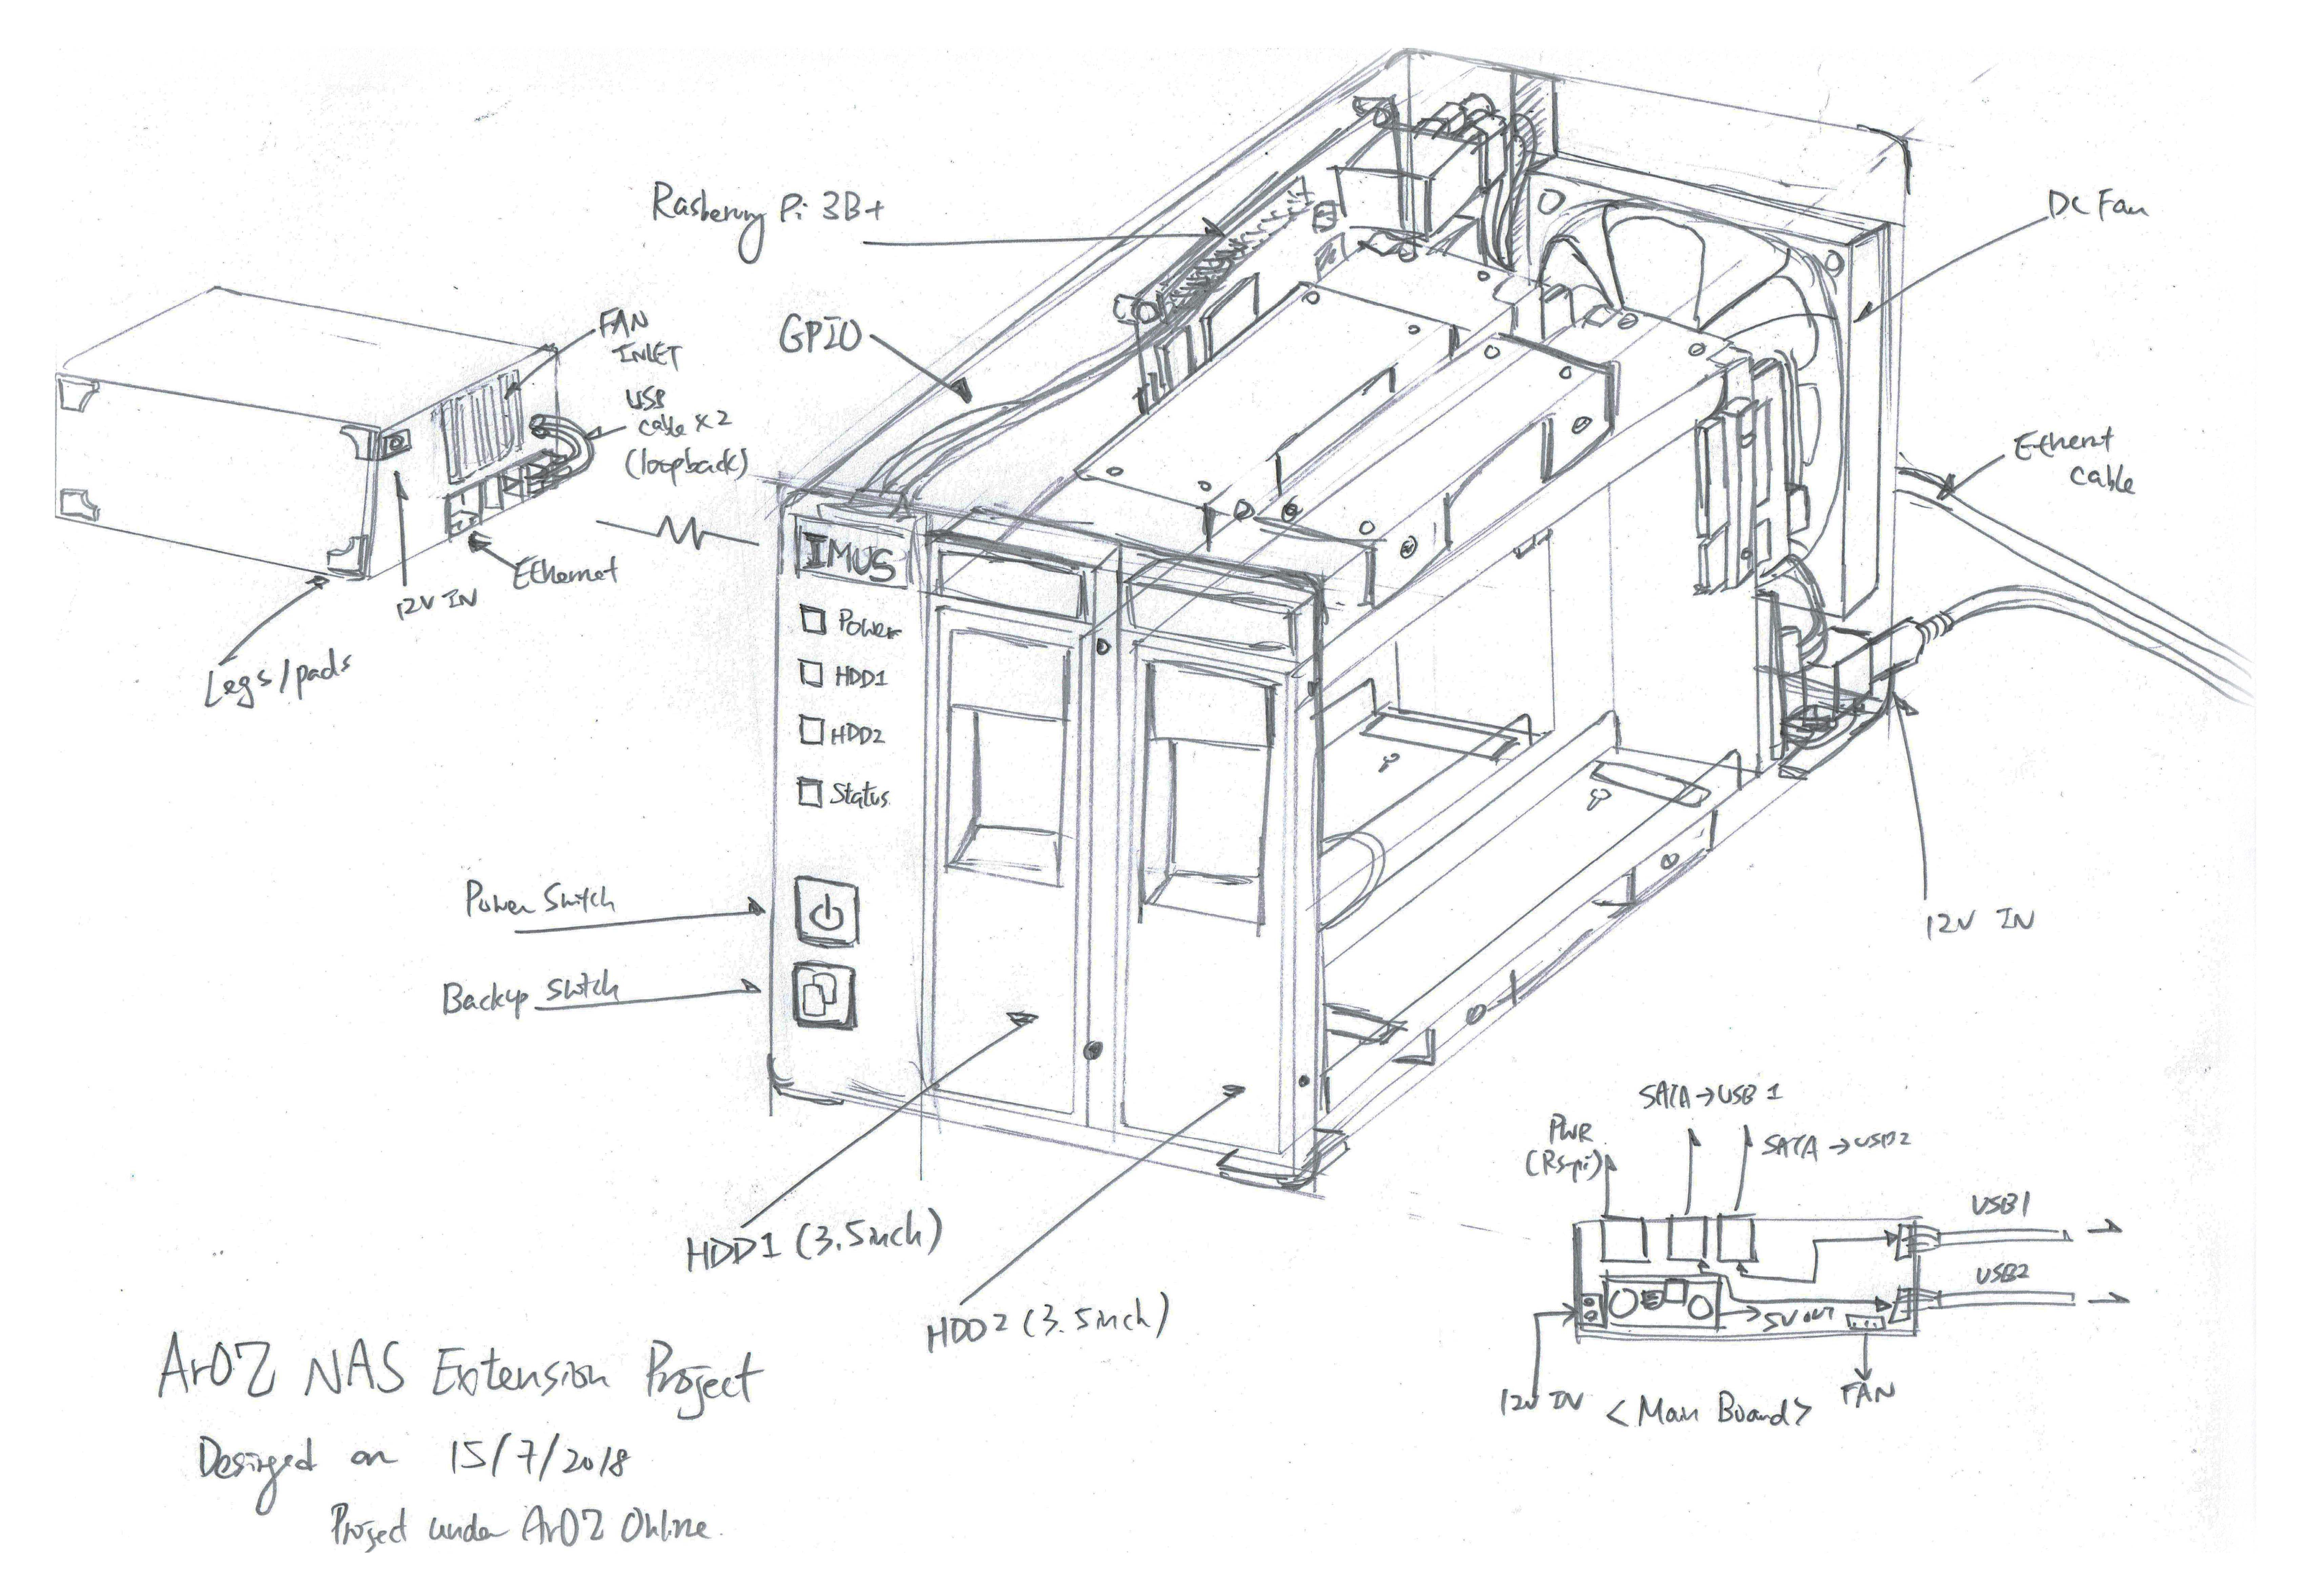 Rasberrry Pi 3B+
DC Fan
GPIO
FAN
INLET
USB
cable x2
(loopback)
Ethernet
12V IN
Legs/pads
Ethernt
cable
IMUS
Power
HDD1
HDD2
Status
Power Switch
Backup Switch
12V IN
HDD1 (3.5inch)
HDD2 (3.5inch)
SATA→USB 1
PWR
(Rspi)
SATA→USB2
USB1
USB2
5V OUT
12V IN
<Main Board>
FAN
ArOZ NAS Extension Project
Desinged on 15/7/2018
Project under ArOZ Online.